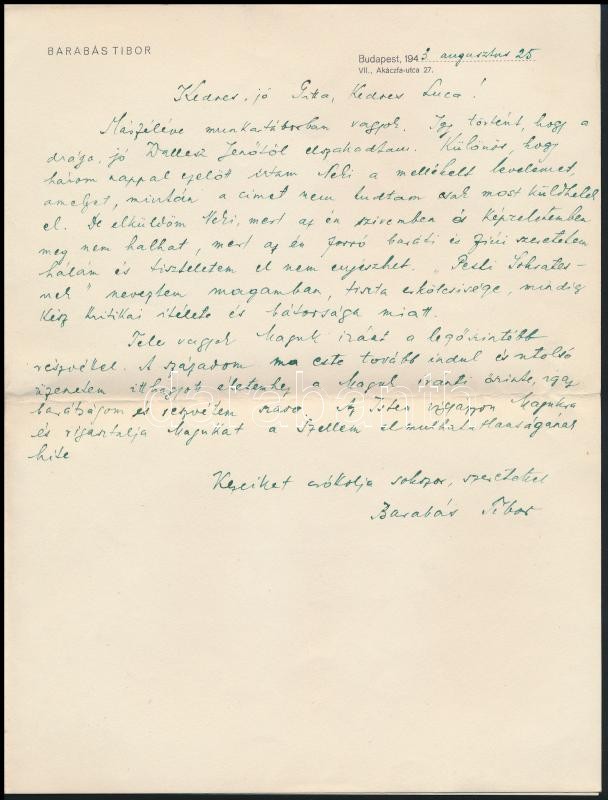 BARABÁS TIBOR
Budapest, 1943 augusztus 25
VII., Akáczfa-utca 27.
Kedves, jó Gitta, Kedves Luca!
Másféléve munkatáborban vagyok. Így történt, hogy a
drága, jó Dallesz Jenőtől elszakadtam. Különös, hogy
három nappal ezelőtt írtam Neki a mellékelt levelemet,
amelyet, miután a címet nem tudtam csak most küldhetek
el. De elküldöm Neki, mert az én szivemben és képzeletemben
meg nem halhat, mert az én forró baráti és fiúi szeretetem
hálám és tiszteletem el nem enyészhet. „Pesti Sokrates-
nek" neveztem magamban, tiszta erkölcsisége, mindig
kész kritikai itélete és bátorsága miatt.
Tele vagyok Maguk iránt a legőszintébb
részvéttel. A századom ma este tovább indul és utolsó
üzenetem itthagyott életemhez, a Maguk iránti őszinte, igaz
barátságom és részvétem szava. Az Isten vigyázzon Magukra
és vigasztalja Magukat a Szellem elmulhatatlanságának
hite
Kezeiket csókolja sokszor, szeretettel
Barabás Tibor
darabanth